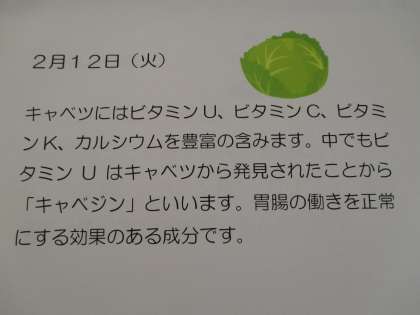 ２月１２日（火）
キャベツにはビタミンＵ、ビタミンＣ、ビタミ
ンＫ、カルシウムを豊富の含みます。中でもビ
タミン Ｕ はキャベツから発見されたことから
「キャベジン」といいます。胃腸の働きを正常
にする効果のある成分です。